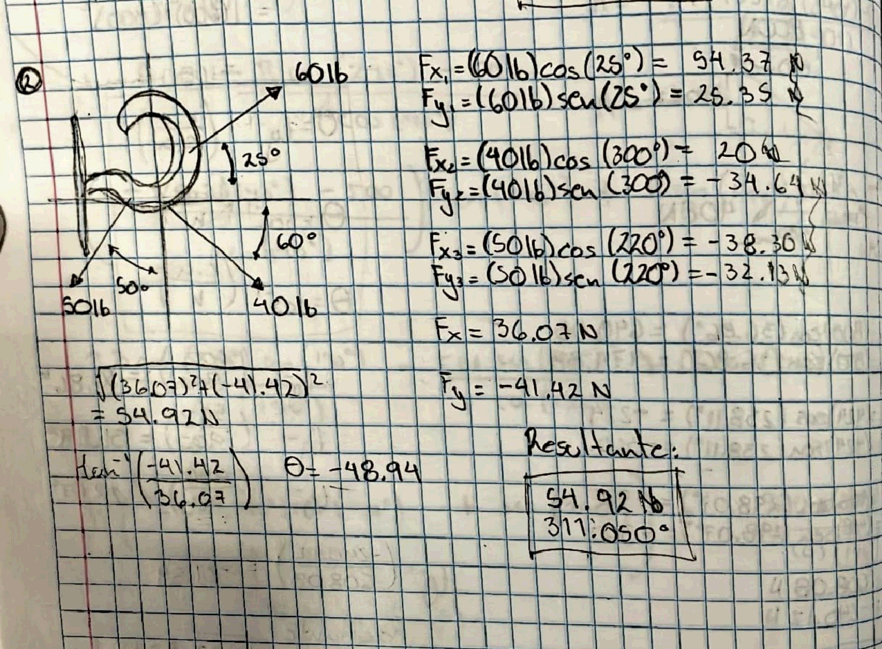 ②
60lb
25°
60°
50°
50lb
40lb
Fx₁=(60lb)cos(25°)= 54.37
Fy₁=(60lb)sen(25°)=25.35
Fx₂=(40lb)cos(300°)= 20
Fy₂=(40lb)sen(300)=-34.64
Fx₃=(50lb)cos(220°)=-38.30
Fy₃=(50lb)sen(220°)=-32.13
Fx=36.07N
Fy=-41.42N
√(36.07)²+(-41.42)²
=54.92N
tan⁻¹(-41.42/36.07) θ=-48.94
Resultante:
54.92 lb
311.050°